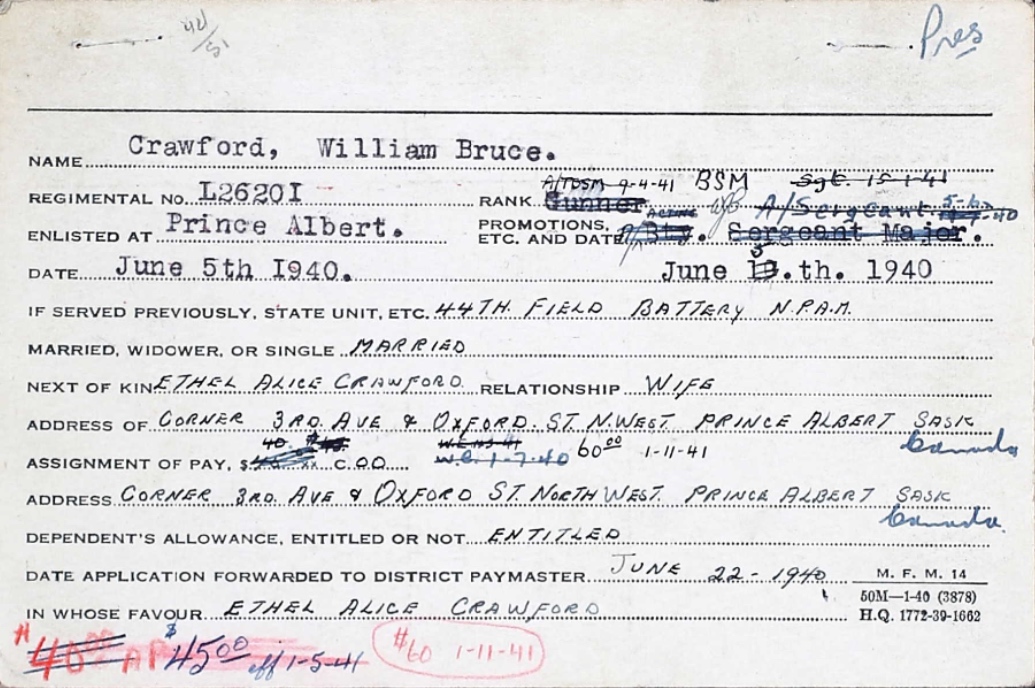 42/51
Pres
NAME Crawford, William Bruce.
A/TBSM 9-4-41 BSM Sgt. 15-1-41
REGIMENTAL NO. L2620I RANK Gunner A/Sergeant 5-6-40
ENLISTED AT Prince Albert. PROMOTIONS, ETC. AND DATE Acting Bty. Sergeant Major.
DATE June 5th I940. June 5.th. 1940
IF SERVED PREVIOUSLY, STATE UNIT, ETC. 44TH. FIELD BATTERY N.P.A.M.
MARRIED, WIDOWER, OR SINGLE MARRIED
NEXT OF KIN ETHEL ALICE CRAWFORD RELATIONSHIP WIFE
ADDRESS OF CORNER 3RD. AVE & OXFORD. ST. N. WEST. PRINCE ALBERT SASK
Canada
ASSIGNMENT OF PAY, $ 40. C.O.O. W.E. 1-7-40 60 00 1-11-41
ADDRESS CORNER 3RD. AVE & OXFORD ST. NORTH WEST. PRINCE ALBERT SASK
Canada.
DEPENDENT'S ALLOWANCE, ENTITLED OR NOT ENTITLED
DATE APPLICATION FORWARDED TO DISTRICT PAYMASTER JUNE 22-1940
M. F. M. 14
50M—1-40 (3878)
H.Q. 1772-39-1662
IN WHOSE FAVOUR ETHEL ALICE CRAWFORD
$40 00 AP $45 00 eff 1-5-41 $60 1-11-41